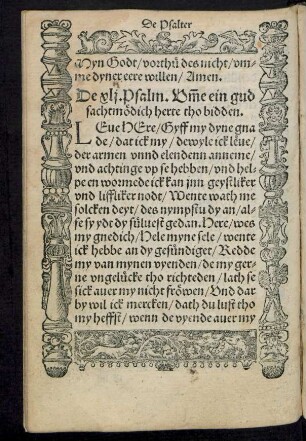 De Psalter
Myn Godt/ vorthü des nicht/ vm-
me dyner eere willen/ Amen.
De xlj. Psalm. Vm̃e ein gud
sachtmödich herte tho bidden.
LEue HEre/ Gyff my dyne gna
de/ dat ick my/ dewyle ick leue/
der armen vnnd elendenn anneme/
vnd achtinge vp se hebben/ vnd hel-
pe en wormede ick kan jnn geystliker
vnd lifliker nodt/ Wente wath me
solcken deyt/ des nympstu dy an/ al-
se sy ydt dy süluest gedan. Here/ wes
my gnedich/ Hele myne sele/ wente
ick hebbe an dy gesündiget/ Redde
my van mynen vyenden/ de my ger-
ne vngelücke tho richteden/ lath se
sick auer my nicht fröwen/ Vnd dar
by wil ick mercken/ dath du lust tho
my heffst/ wenn de vyende auer my